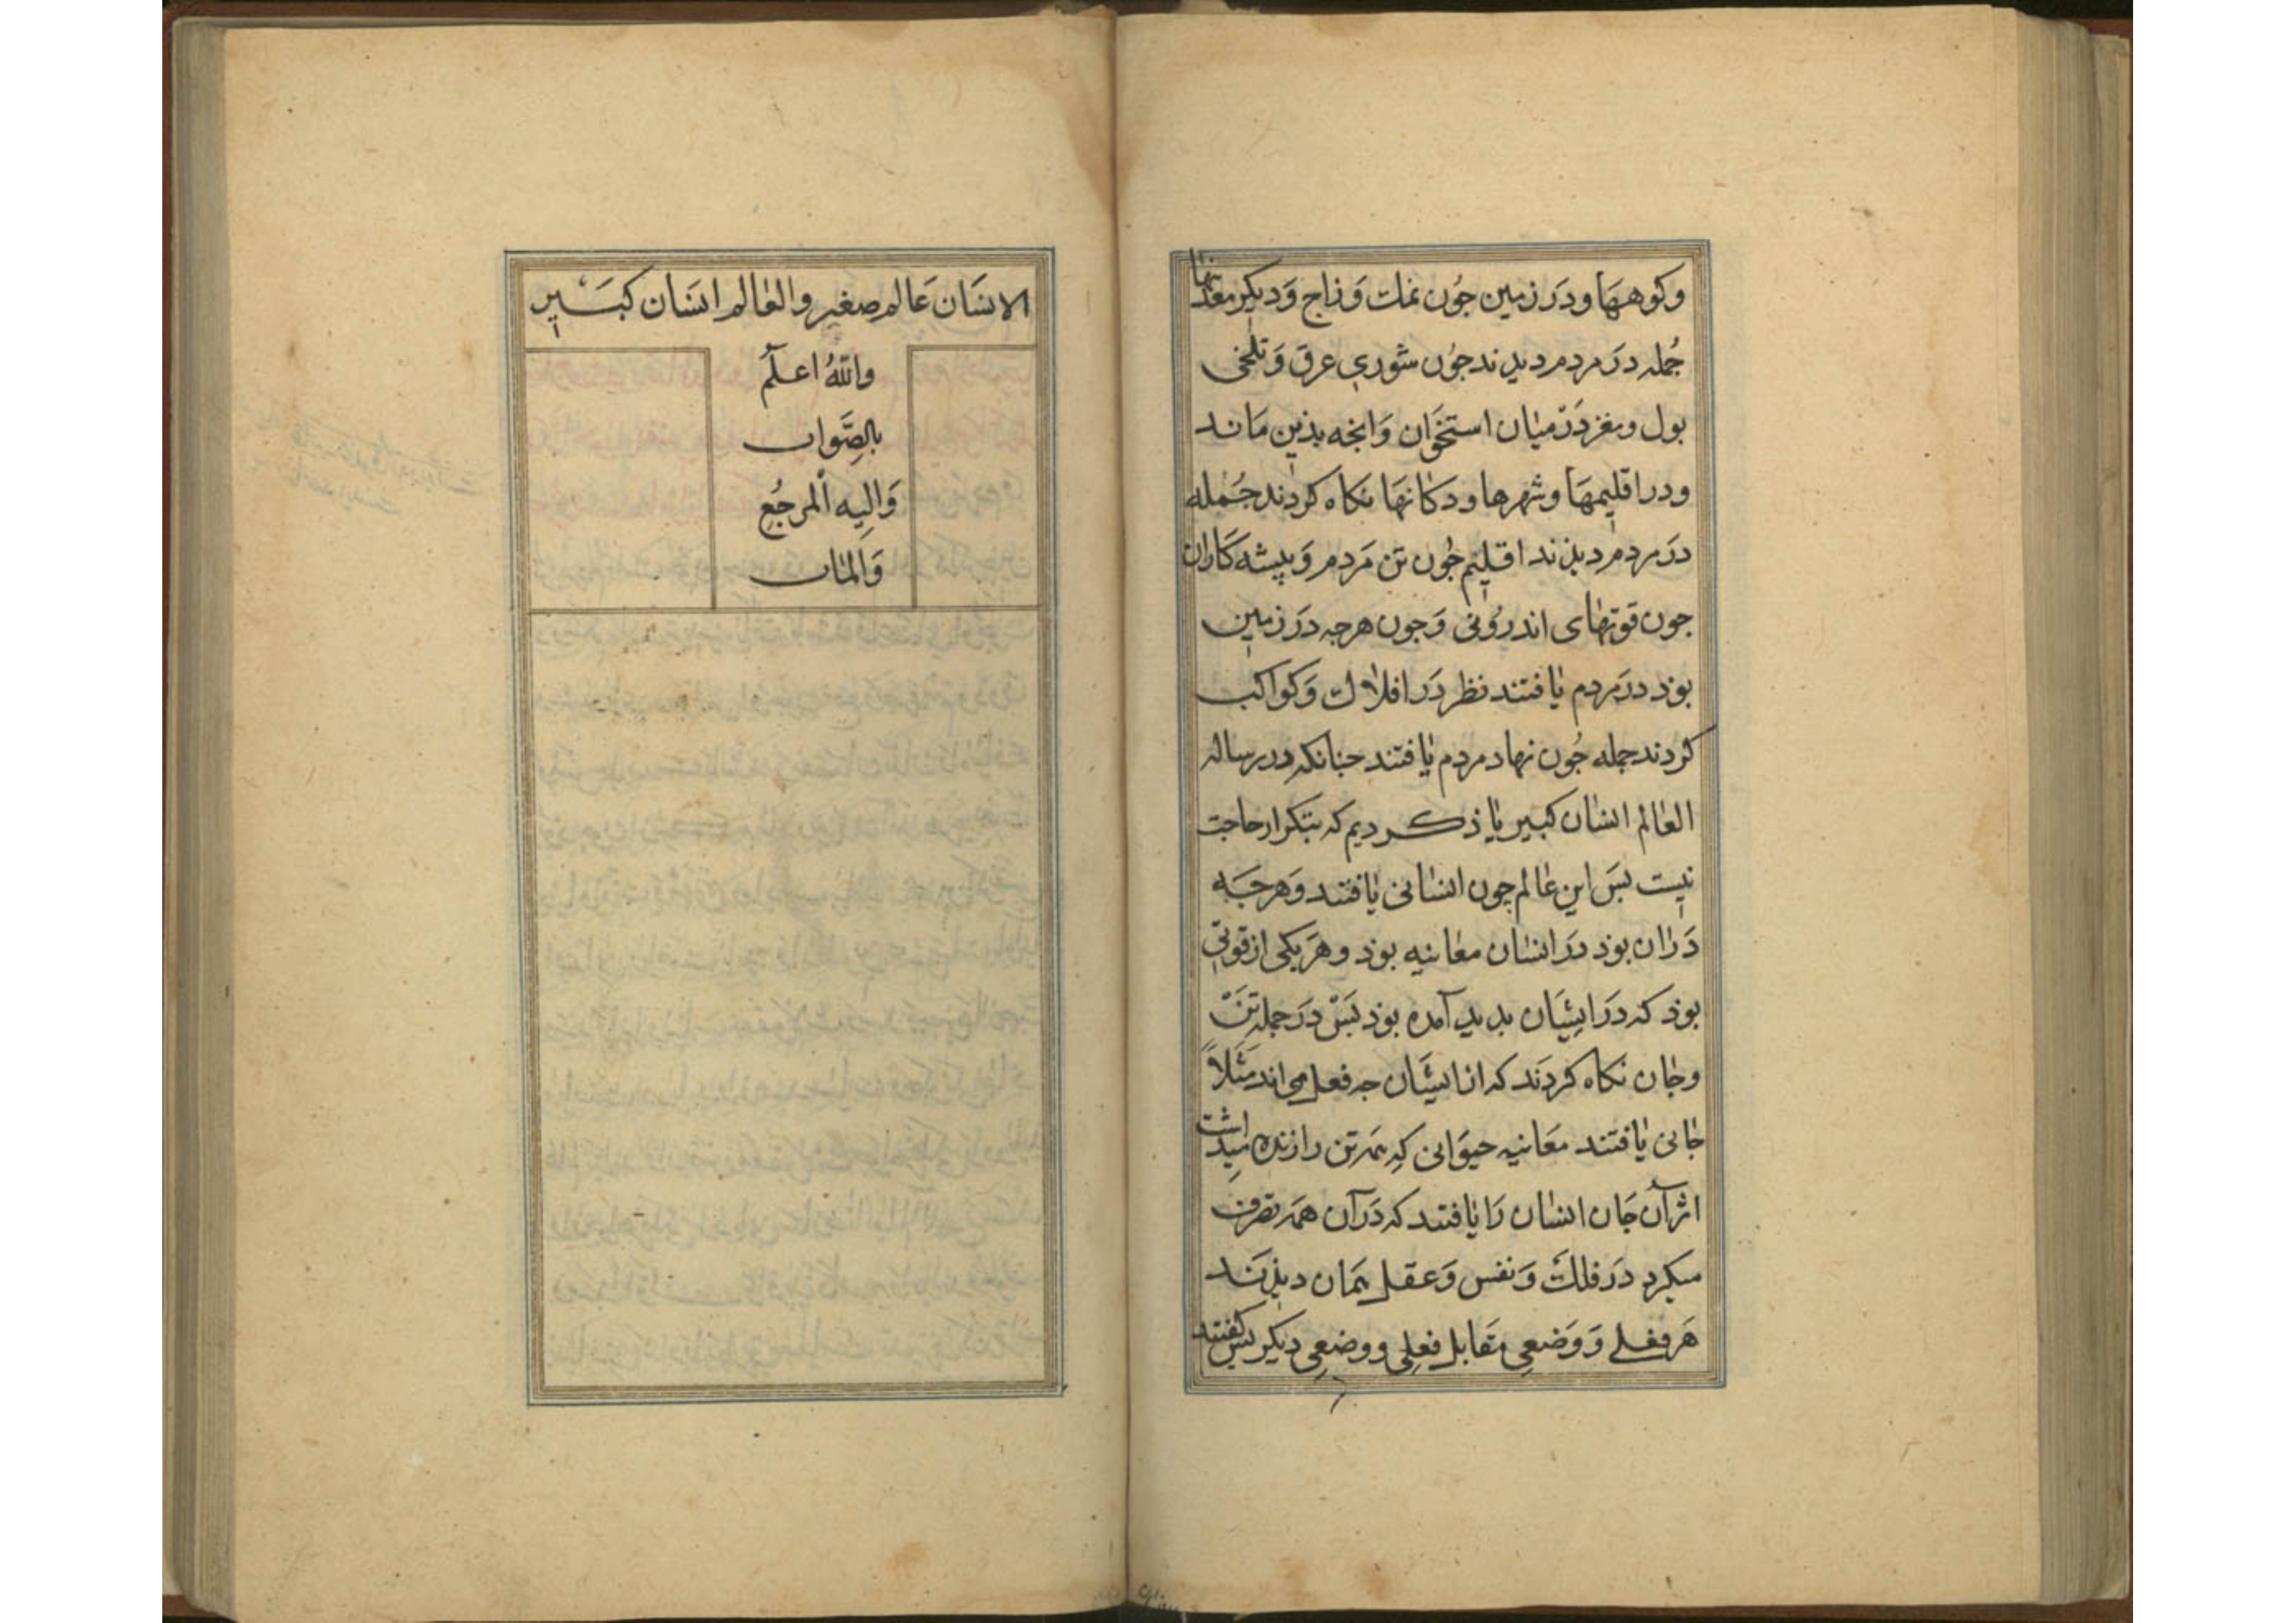 وکوهها ودر زمین جون نمک وزاج ودیکر معدنها
جمله در مردم دیدند جون شوری عرق وتلخی
بول ومغز در میان استخوان وانجه بذین ماند
ودر اقلیمها وشهرها ودکانها نکاه کردند جمله
در مردم دیذند اقلیم جون تن مردم وپیشه کاران
جون قوتهای اندرونی وجون هرجه در زمین
بوذ در مردم یافتند نظر در افلاک وکواکب
کردند جمله جون نهاد مردم یافتند جنانکه در رساله
العالم انسان کبیر یاذ کردیم که بتکرار حاجت
نیست بس این عالم چون انسانی یافتند وهرجه
دران بوذ در انسان معاینه بوذ وهر یکی از قوتی
بوذ که در ایشان بدید آمده بوذ بس در جمله تن
وجان نکاه کردند که از ایشان جه فعل می اند مثلاً
جانی یافتند معاینه حیوانی که همه تن را زنده میداشت
اثر آن جان انسان را یافتند که در آن همه تصرف
میکرد در فلک ونفس وعقل همان دیذند
هر فعلی ووضعی مقابل فعلی ووضعی دیکر بس کفتند
الانسان عالم صغیر والعالم انسان کبیر
والله اعلم
بالصواب
والیه المرجع
والمآب